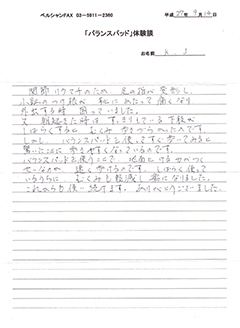 ペルシャンFAX 03-5811-2360
平成 27年 9月 14日
「バランスパッド」体験談
お名前 K. J
関節リウマチのため 足の指が変形し、
小趾のつけ根が 靴にあたって痛くなり
外出する時 困っていました。
又 朝起きた時は すっきりしている下肢が
しばらくすると むくみ 歩きづらかったのです。
しかし、バランスパッドを使ってすぐ歩いてみると
驚いたことに 歩きやすくなっているのです。
バランスパッドを使うことで、地面とける せがつく
せいなのか 速く歩けるのです。しばらく使って
いるうちに むくみも軽減し 楽になりました。
これからも使い続けます。ありがとうございました。